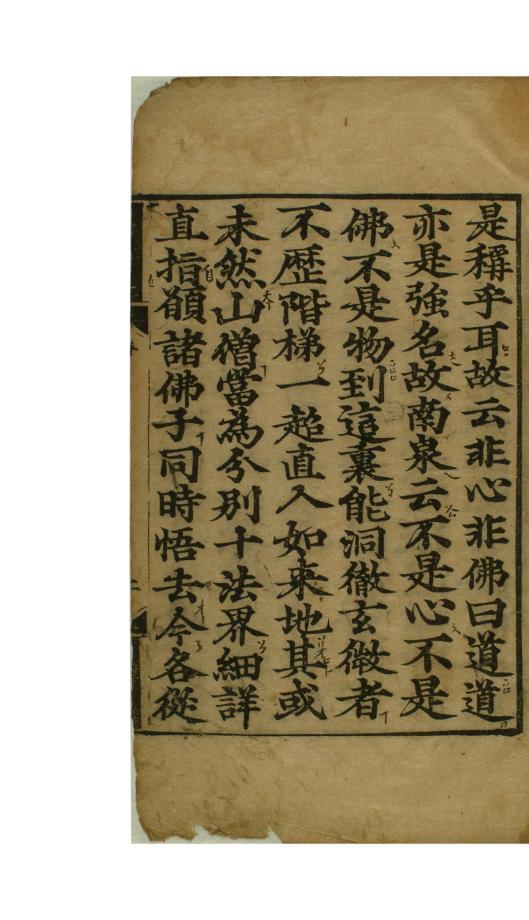 是稱乎耳故云非心非佛曰道道
亦是強名故南泉云不是心不是
佛不是物到這裏能洞徹玄微者
不歷階梯一超直入如來地其或
未然山僧當為分別十法界細詳
直指願諸佛子同時悟去今各從